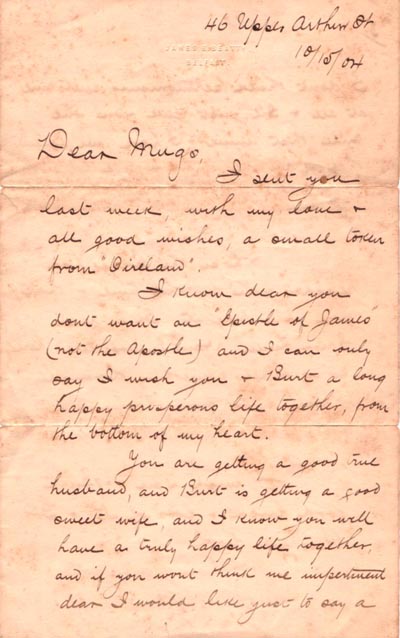 46 Upper Arthur St
10/15/04
Dear Mugs,
I sent you
last week, with my love +
all good wishes, a small token
from "Oireland".
I know dear you
dont want an "Epistle of James"
(not the Apostle) and I can only
say I wish you + Burt a long
happy prosperous life together, from
the bottom of my heart.
You are getting a good true
husband, and Burt is getting a good
sweet wife, and I know you will
have a truly happy life together,
and if you wont think me impertinent
dear I would like just to say a